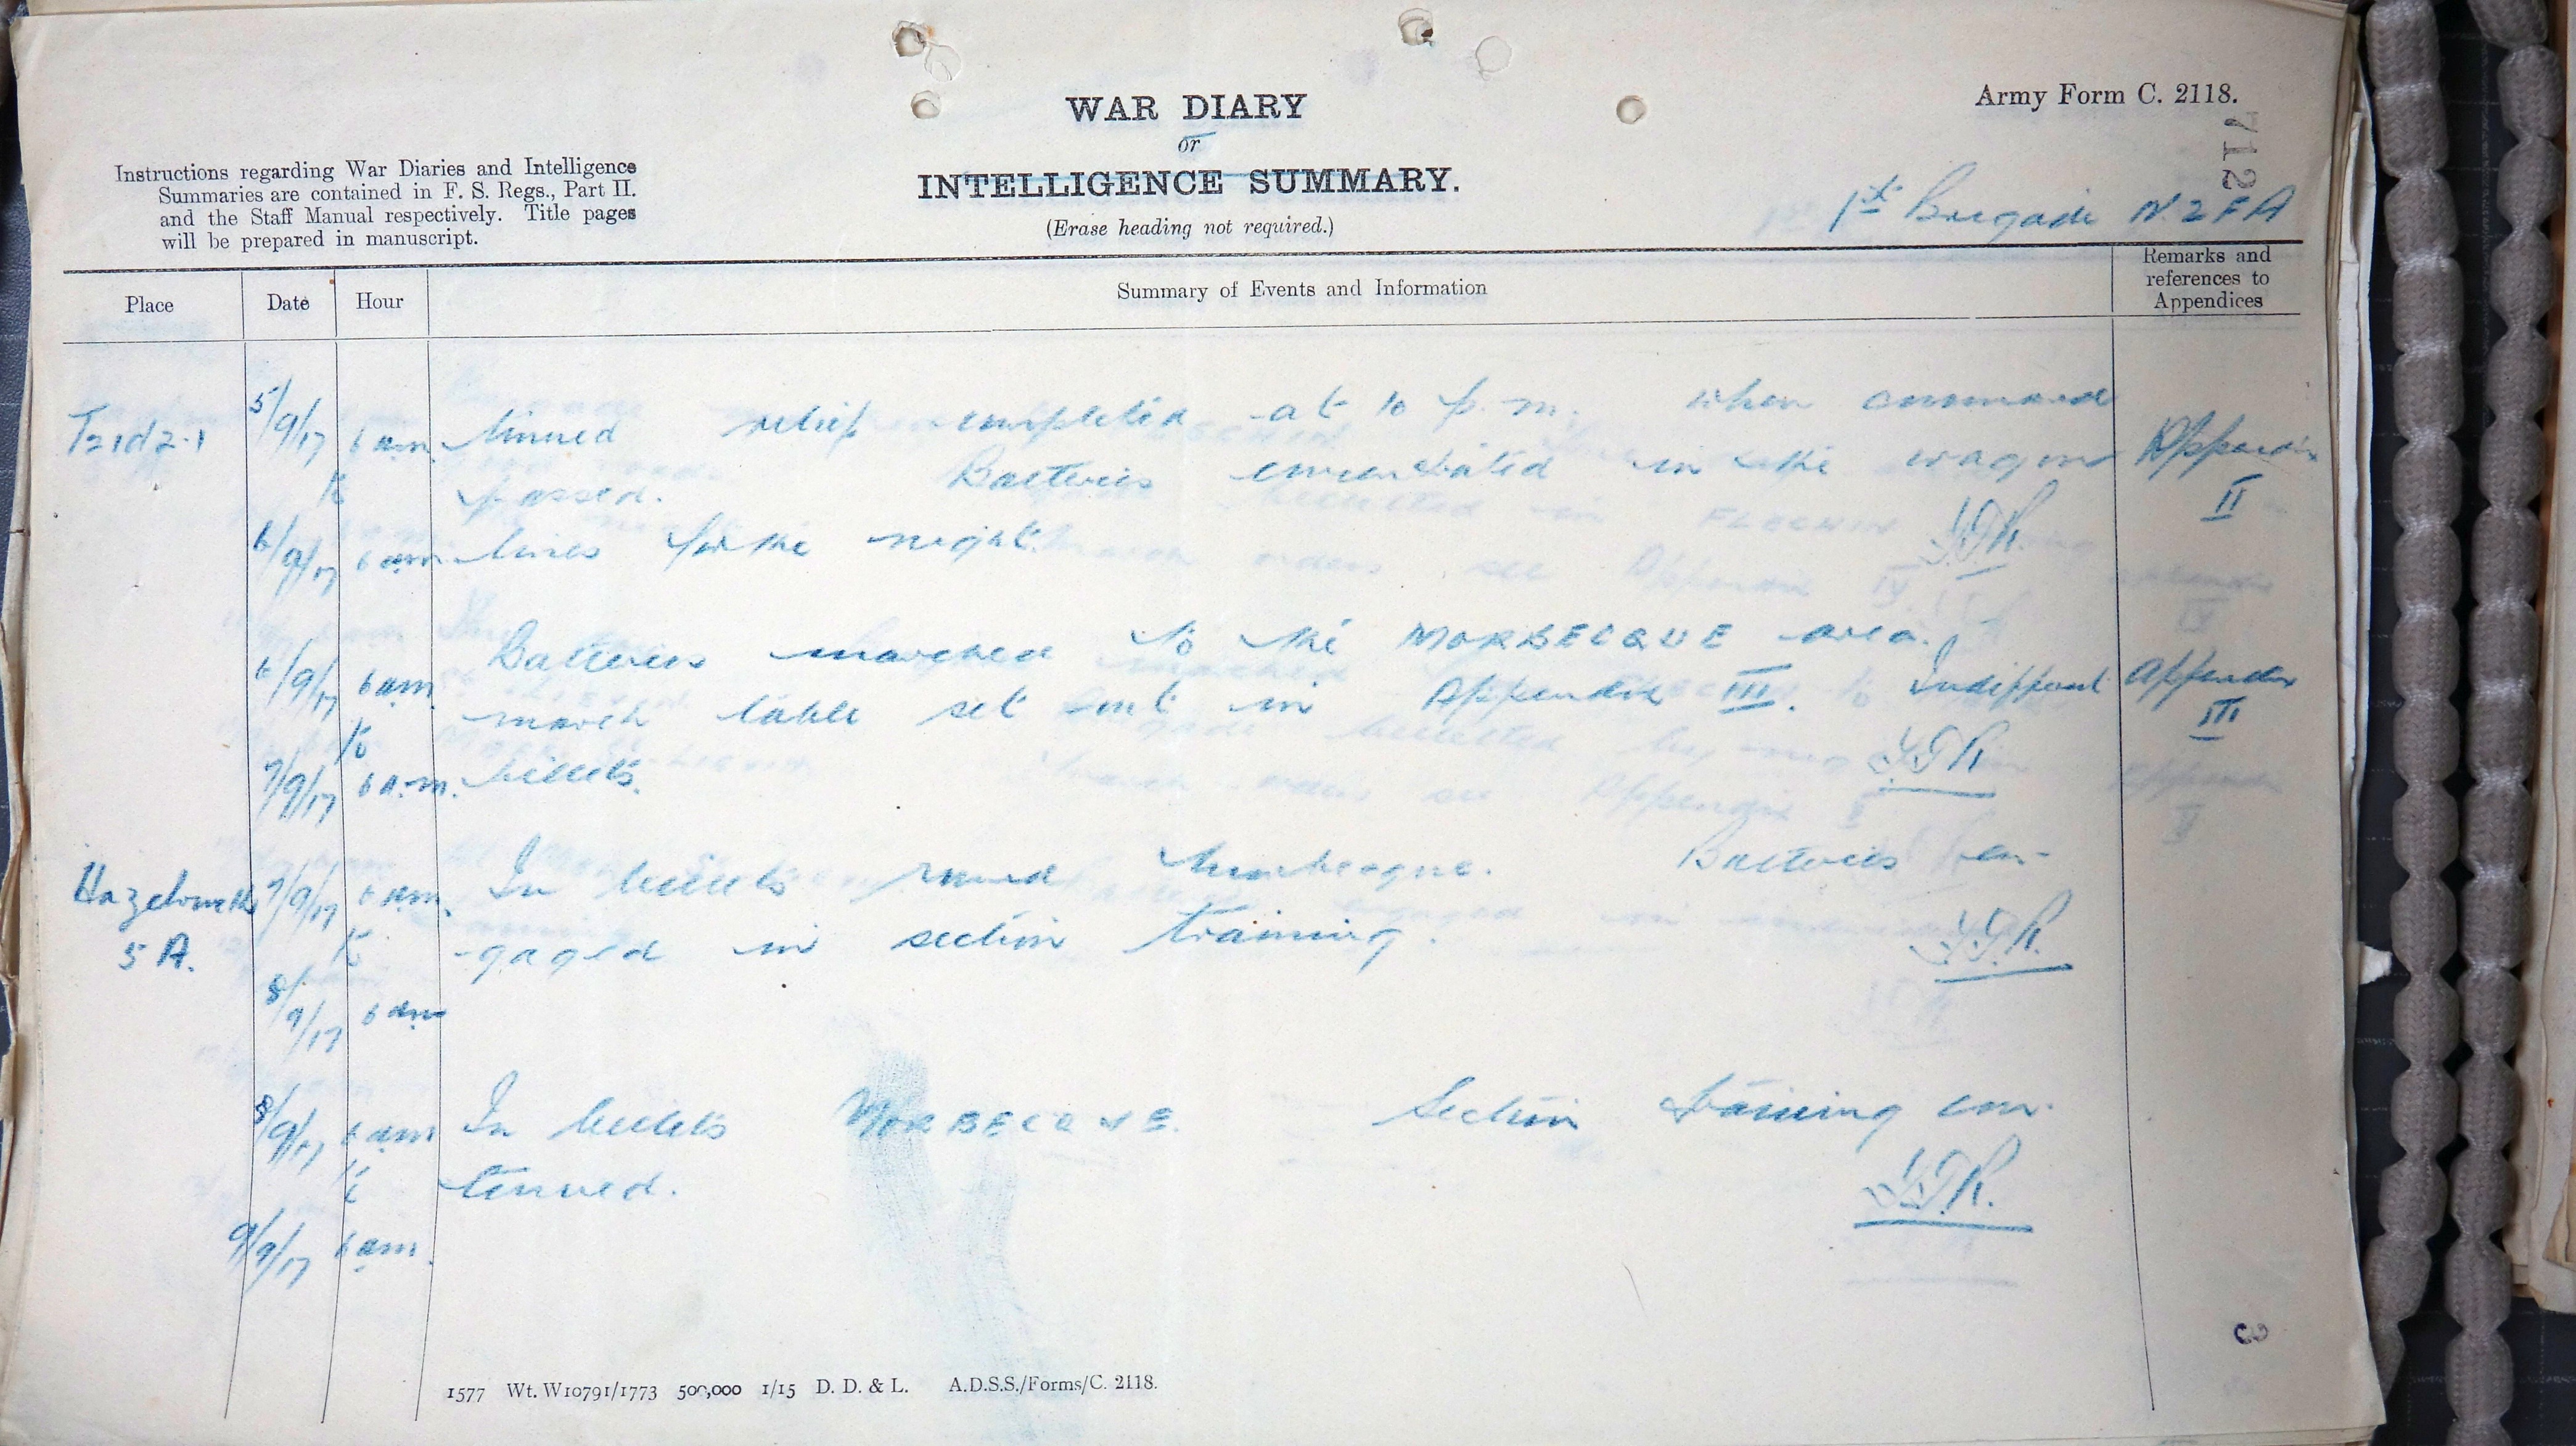 WAR DIARY
or
INTELLIGENCE SUMMARY.
(Erase heading not required.)
Army Form C. 2118.
712
Instructions regarding War Diaries and Intelligence
Summaries are contained in F. S. Regs., Part II.
and the Staff Manual respectively. Title pages
will be prepared in manuscript.
1st Brigade NZFA
Place Date Hour Summary of Events and Information Remarks and references to Appendices
T21d2.1 5/9/17 6 am. tinued relief completed at 10 p.m. when command Appendix
to passed. Batteries concentrated in the wagon II
6/9/17 6 am lines for the night.
6/9/17 6 am. Batteries marched to the MORBECQUE area. Appendix
to march table set out in Appendix III. Indifferent III
7/9/17 6 a.m. billets.
Hazebrouck 7/9/17 6 am. In billets round Morbecque. Batteries en-
5 A. to -gaged in section training.
8/9/17 6 am
8/9/17 6 am In billets MORBECQUE. Section training con-
to tinued.
9/9/17 6 am.
3
1577 Wt. W10791/1773 500,000 1/15 D. D. & L. A.D.S.S./Forms/C. 2118.